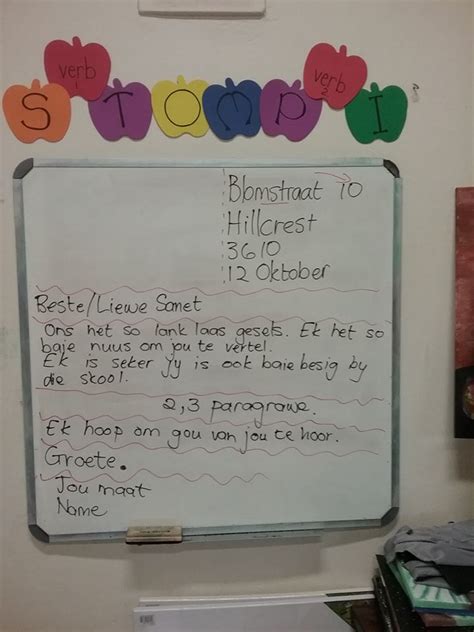 verb
1
verb
2
STOMPI
Blomstraat 10
Hillcrest
3610
12 Oktober
Beste/Liewe Sanet
Ons het so lank laas gesels. Ek het so
baje nuus om jou te vertel.
Ek is seker jy is ook baie besig by
die skool.
2,3 paragrawe.
Ek hoop om gou van jou te hoor.
Groete.
Jou maat
Name